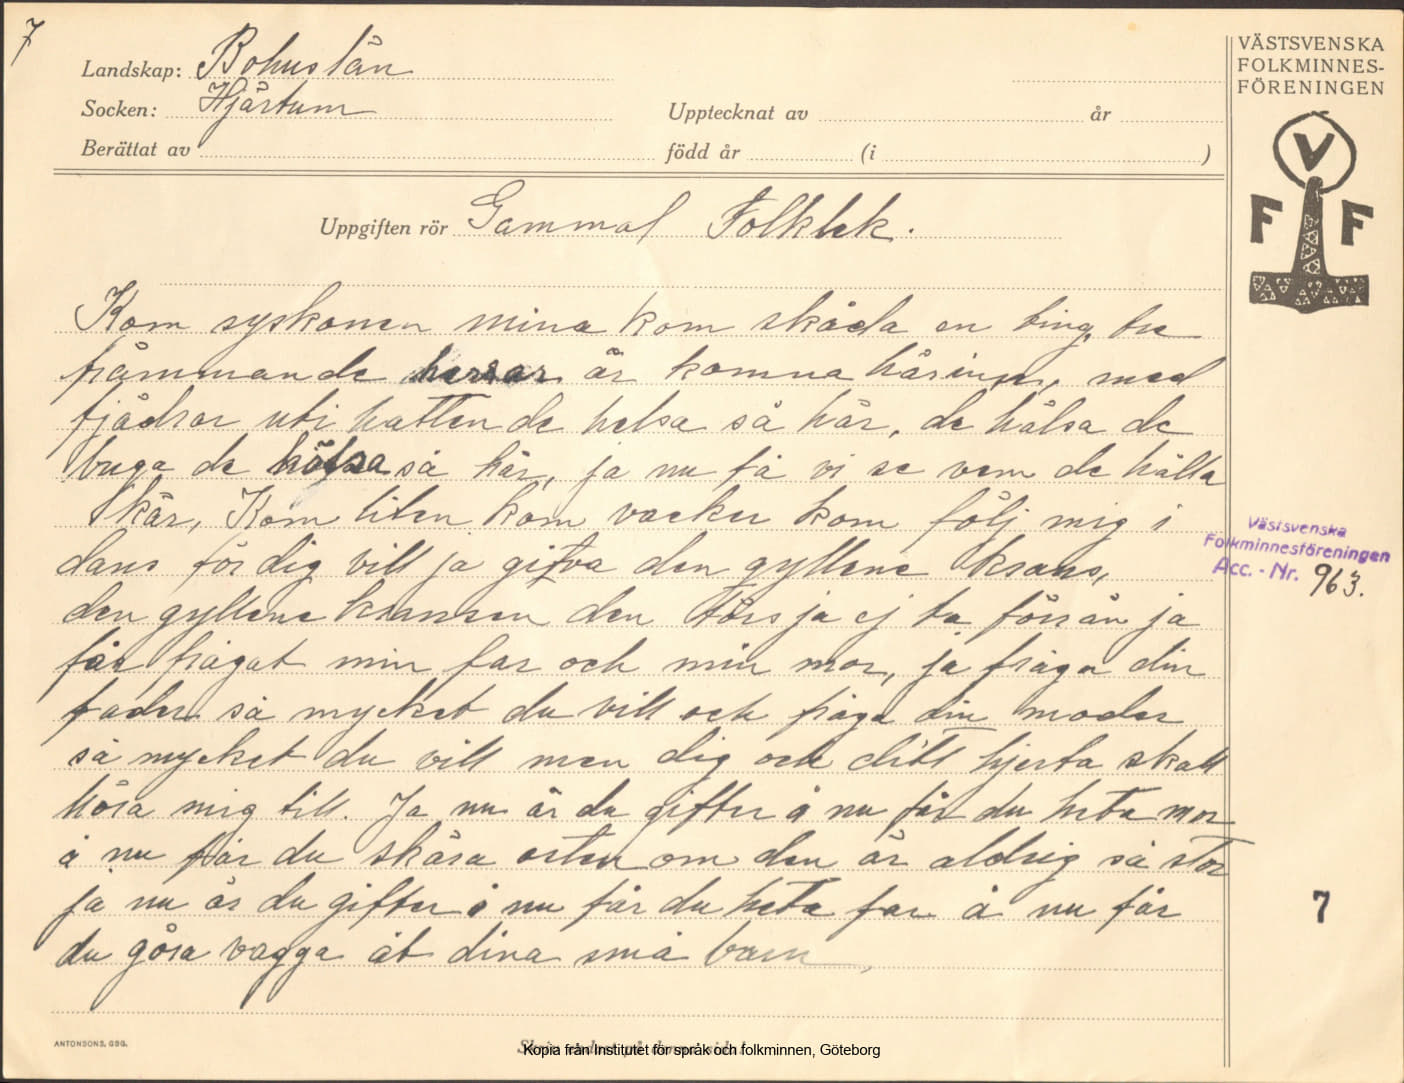 7
Landskap: Bohuslän
Socken: Hjärtum
Upptecknat av år
Berättat av född år (i )
VÄSTSVENSKA
FOLKMINNES-
FÖRENINGEN
V
F F
Uppgiften rör Gammal Folklek.
Kom syskonen mina kom skåda en ting, tre
främmande herrar är komna härinn, med
fjädrar uti hatten de helsa så här, de hälsa de
buga de hälsa så här, ja nu få vi se vem de hålla
kär, Kom liten kom vacker kom följ mig i
dans för dig vill ja gifva den gyllene krans,
den gyllene kransen den törs ja ej ta förrän ja
får frågat min far och min mor, ja fråga din
fader så mycket du vill och fråga din moder
så mycket du vill men dig och ditt hjerta skall
höra mig till. Ja nu är du gifter å nu får du heta mor
å nu får du skära osten om den är aldrig så stor
ja nu är du gifter å nu får du heta far å nu får
du göra vagga åt dina små barn,
Västsvenska
Folkminnesföreningen
Acc. - Nr. 963.
7
ANTONSONS, GBG.
Kopia från Institutet för språk och folkminnen, Göteborg